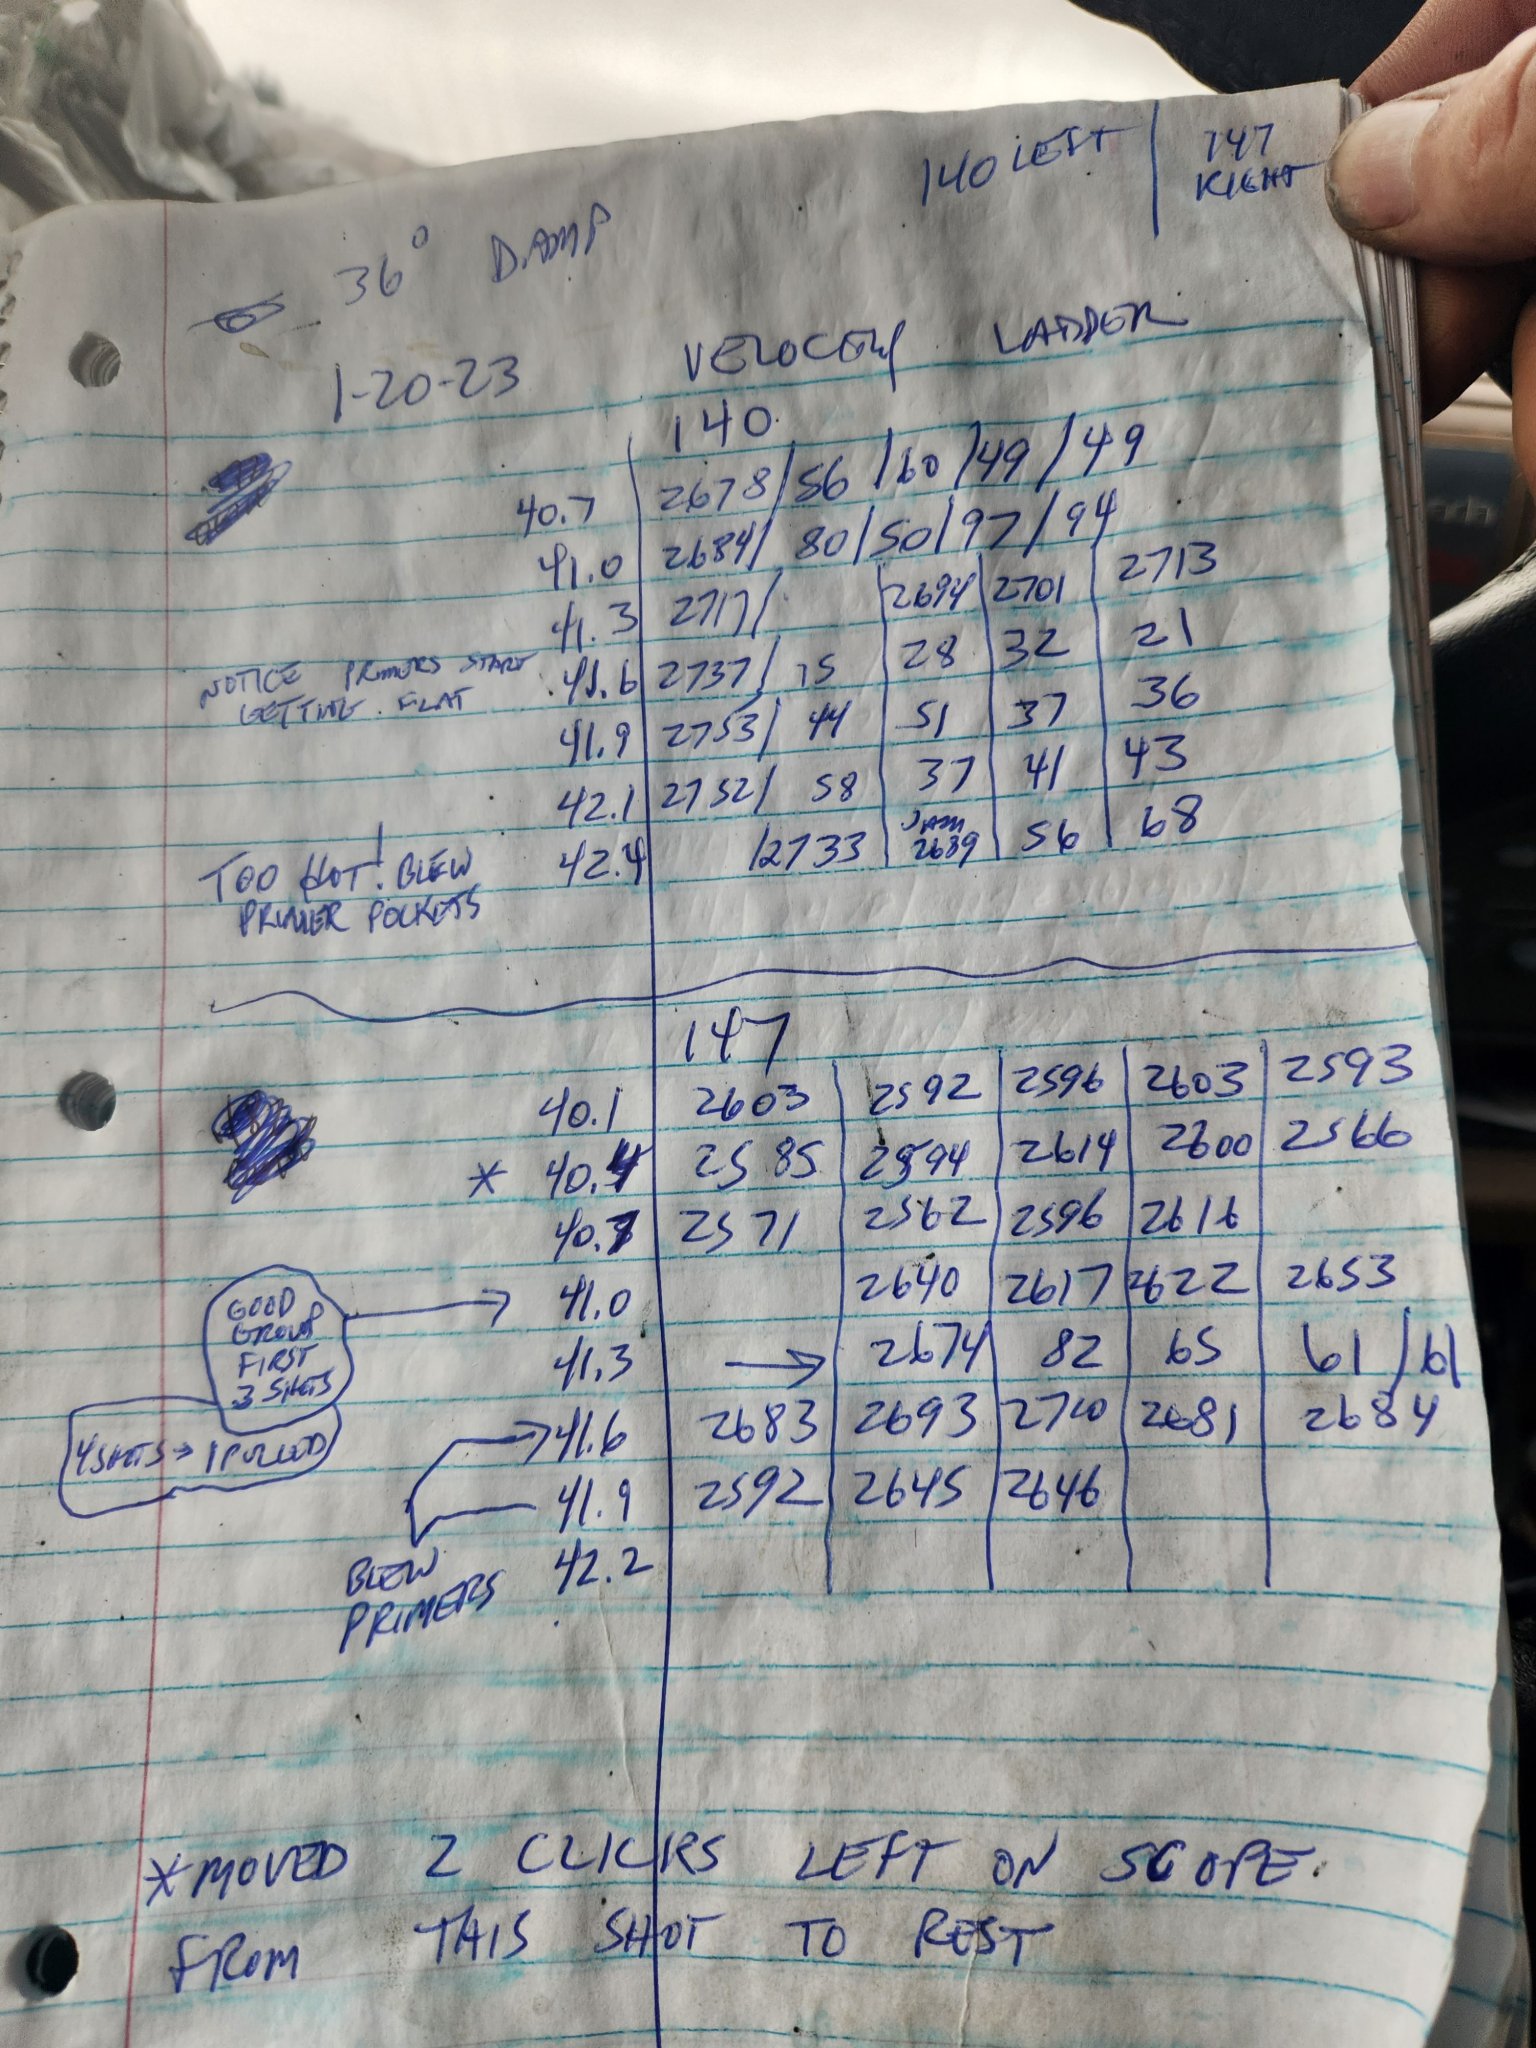 140 LEFT | 147 RIGHT
36° DAMP
1-20-23 VELOCETY LADDER
140
40.7 2678 / 56 / 60 / 49 / 49
41.0 2684 / 80 / 50 / 97 / 94
41.3 2717 / 2694 2701 2713
NOTICE PRIMERS START GETTING FLAT
41.6 2737 / 15 28 32 21
41.9 2753 / 44 51 37 36
42.1 2752 / 58 37 41 43
TOO HOT! BLEW PRIMER POCKETS
42.4 / 2733 JAM 2689 56 68
147
40.1 2603 2592 2596 2603 2593
* 40.4 2585 2594 2614 2600 2566
40.7 2571 2562 2596 2616
GOOD GROUP FIRST 3 SHOTS → 41.0 2640 2617 2622 2653
41.3 → 2674 82 65 61 / 61
4 SHOTS → 1 PULLED
41.6 2683 2693 2710 2681 2684
41.9 2592 2645 2646
BLEW PRIMERS
42.2
* MOVED 2 CLICKS LEFT ON SCOPE.
FROM THIS SHOT TO REST